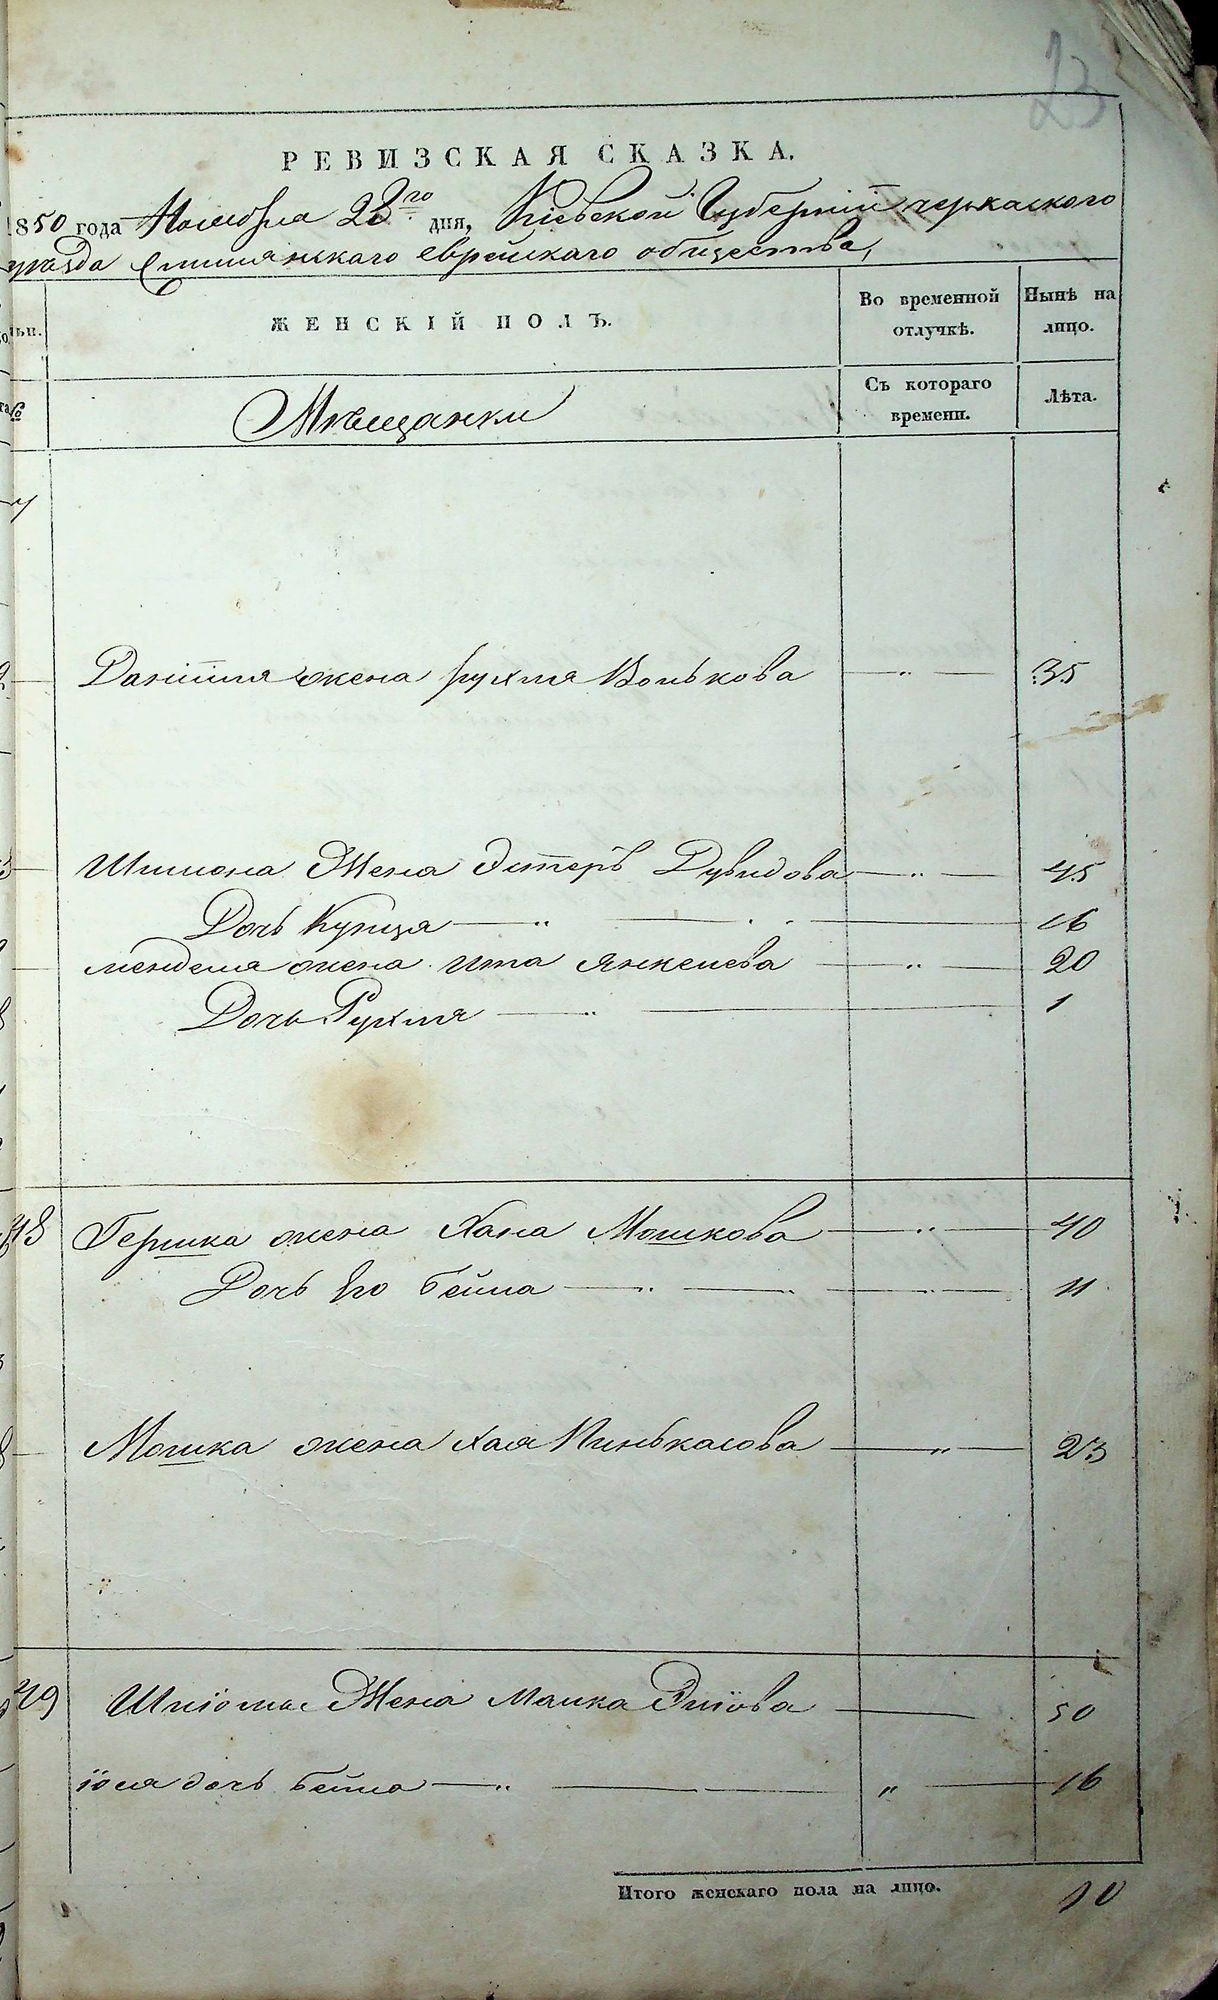 23
РЕВИЗСКАЯ СКАЗКА.
1850 года Ноября 28го дня, Кіевской Губерніи черкаского
уезда Смилянскаго еврейскаго общества,
ЖЕНСКІЙ ПОЛЪ.
Во временной отлучкѣ.
Нынѣ на лицо.
Мѣщанки
Съ котораго времени.
Лѣта.
Даніиля жена рухля Волькова — " — 35
Шимона Жена Эстеръ Дувидова — " — 45
Дочь Купця — " — 16
менделя жена ита янкелева — " — 20
Дочь Рухля — " — 1
48 Гершка жена Хана Мошкова — " — 40
Дочь Его бейла — " — 11
Мошка жена Хая Пинькасова — " — 23
49 Жена Малка — 50
іоля дочь бейла — " — " — 16
Итого женскаго пола на лицо. 10